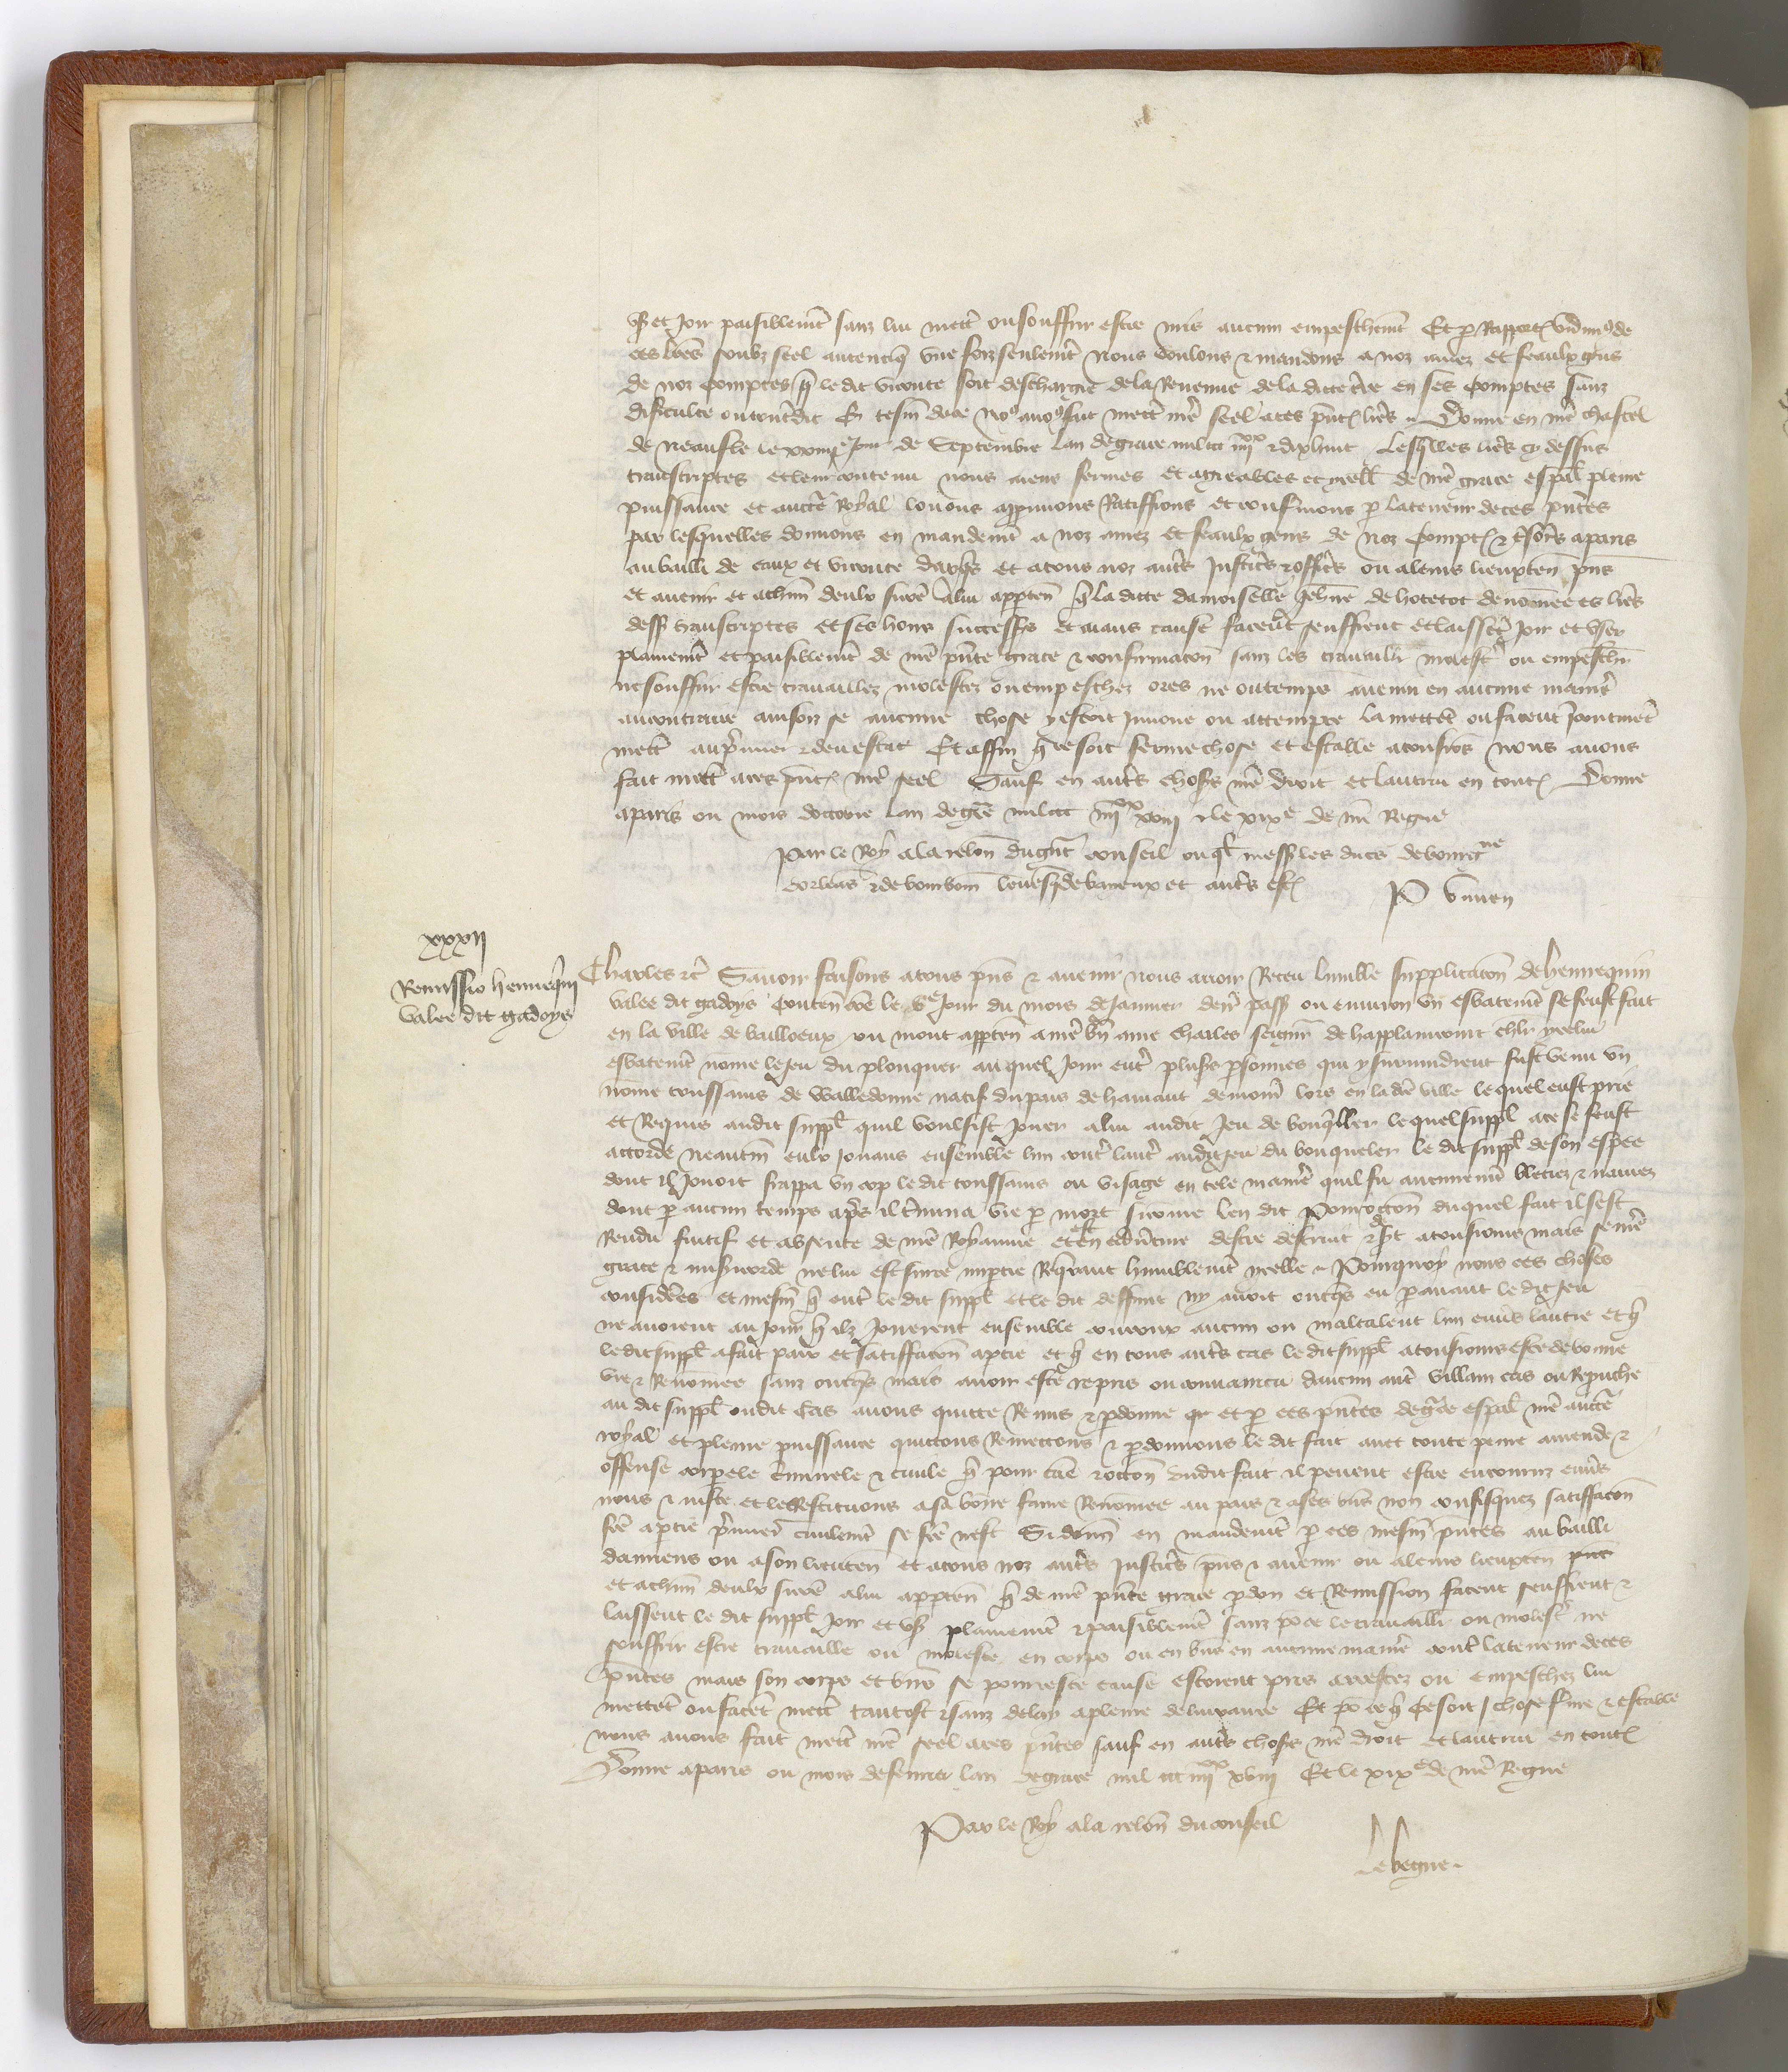 user et joir paisiblemēt sanz lui mettr̄ ou souffrir estre mis aucun empeschemēt Et p Rapport vidimꝰ de
ces lrēs soubz seel autentiq̄ vne foiz seulemēt Nous voulons & mandons a noz amez et feaulx gens
de noz comptes q̄ le dit viconte soit deschargie de la Revenue de la ditte tr̄re en ses comptes sanz
dificulte ou contredit En tesm̄ de ce noꝰ auoꝰ fait mettr̄ nr̄e seel a ces pn̄t lrēs Donne en nr̄e chastel
de Neaufle le jour de Septembre lan de grace mil ccc iiijxx & dixhuit Lesq̄lles lrēs cy dessus
transcriptes et le contenu nous aiens fermes et agreables icell de nr̄e grace esp̄al pleine
puissance et auctē Royal louons app̄uuons Ratiffions et confirmons p la teneur de ces pn̄tes
par lesquelles donnons en mandemēt a noz amez et feaulx gens de noz Compt & tresors a paris
au bailli de caux et viconte darqs et a tous noz autr̄s justicrs & officrs ou a leurs lieuxten̄ pn̄s
et auenir et a chun̄ deulx si cōe a lui appten̄ q̄ la ditte damoiselle jehn̄e de hotetot denōmee es lrēs
dess transcriptes et ses hoirs success et aians cause facent seuffrent et laissent joir et vser
plainemēt et paisiblemēt de nr̄e pn̄te grace & confirmacōn sanz les trauailler molestr̄ ou empeschr̄
ne souffrir estre trauaillez molestez ou empeschez ores ne ou temps auenir en aucune manier̄
au contraire aincois se aucune chose y estoit jnnoue ou attempte la mettēt ou facent
mettr̄ au pr̄mier & deu estat Et affin q̄ ce soit ferme chose et estable a tousiours nous auons
fait mettr̄ a ces pn̄t nr̄e seel Sauf en autr̄s choses nr̄e droit et lautrui en tout Donne
a paris ou mois doctobre lan de grāce mil ccc iiijxx xviij & le xixe de nr̄e Regne
Par le Roy a la relōn du gn̄t conseil ouql̄ mess les ducs de bourgne
dorleās & de bourbon̄ leuesq̄ de baieux et autr̄s est P
xxxij
Remissio hennequin
Valee dit gadoys
Charles &c̄ Sauoir faisons a tous pn̄s & auenir nous auoir Receu lumble supplicacōn de hennequin
valee dit gadoys conten̄ cōe le ve jour du mois de januier denr̄ pass ou enuiron vn esbatemēt se feust fait
en la ville de bailloeux ou mont appten̄ a nr̄e bn̄ ame Charles seignr̄ de happlaincourt chlr̄ ycelui
esbatemēt nōme le jeu du plonquer auquel jour entr̄ plusrs personnes qui y suruindrent fust venu vn
nōme toussains de Walledonne natif du pais de hainaut demour̄ lors en la dc̄e ville lequel eust prie
et Requis audit suppl̄ quil voulsist jouer a lui audit jeu de bouqller lequel suppl̄ a ce se feust
accorde neautm̄ eulx jouans ensemble lun contr̄ lautr̄ audit jeu du bouqueler le dit suppl̄ de son espee
dont il jouoit frappa vn cop le dit toussains ou visage en tele manier̄ quil fu blecez & naurez
dont p aucun temps aprs̄ il termina vie p mort si comme len dit Pour occōn duquel fait il sest
Rendu fuitif et absente de nr̄e Royaume et est en auentur̄ destre destruit & desert a tousiours mais se nr̄e
grace & misericorde ne lui est sur ce impartie Reqrant humblemēt ycelle Pourquoy nous ces choses
considerees et mesm̄ q̄ entr̄ le dit suppl̄ et le dit deffunt ny auoit oncqs eu p auant le dit jeu
ne auoient au jour q̄ ilz jouerent ensemble courroux aucun ou maltalent lun enuers lautre et q̄
le dit suppl̄ a fait paix et satiffacōn a ptie et q̄ en tous autr̄s cas le dit suppl̄ a tousiours este de bonne
vie & Renōmee sanz oncqs mais auoir este repris ou conuaincu daucun autr̄ villain cas ou Reprouche
au dit suppl̄ oudit cas auons quitte Remis & pdonne et p ces pn̄tes de grāce esp̄al nr̄e auctē
royal et pleine puissance quittons Remettons & pdonnons le dit fait auec toute peine amende &
offense corpele criminele & ciuile q̄ pour cause & occōn dudit fait il peuent estre encouruz enuers
nous & justice et le Restituons a sa bonne fame Renōmee au pais & a ses biens non confisquez satiffacōn
fcē a ptie pr̄mier ciuilemēt se fcē nest Si donn̄s en mandemēt p ces mesm̄ pn̄tes au bailli
damiens ou a son lieuten̄ et a tous noz autr̄s justicrs pn̄s & auenir ou a leurs lieuxten
et a chun̄ deulx si cōe a lui appten̄ q̄ de nr̄e pn̄te grace pdon et Remission facent seuffrent &
laissent le dit suppl̄ joir et vser plainemēt & paisiblemēt sanz pour ce le trauaillr̄ ou molestr̄ ne
souffrir estre trauaille ou moleste en corps ou en biens en aucune manier̄ contr̄ la teneur de ces
pn̄tes mais son corps et biens se pour ceste cause estoient pris arrestez ou empeschez lui
mettēt ou facēt mettr̄ tantost & sanz delay a pleine deliurance Et pour ce q̄ ce soit chose ferme & estable
nous auons fait mettr̄ nr̄e seel a ces pn̄tes sauf en autr̄s choses nr̄e droit et lautrui en tout
Donne a paris ou mois de feurier lan de grace mil ccc iiijxx xviij Et le xixe de nr̄e Regne
Par le Roy a la relōn du conseil
Le begue